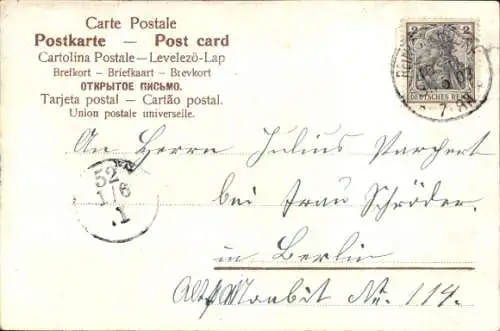 Carte Postale
Postkarte — Post card
Cartolina Postale — Levelezö-Lap
Brefkort — Briefkaart — Brevkort
ОТКРЫТОЕ ПИСЬМО.
Tarjeta postal — Cartão postal.
Union postale universelle.
2 2
DEUTSCHES REICH
An Herrn Julius Parchert
bei Frau Schröder.
in Berlin
Alt Moabit No. 114.
52
1/6
.1